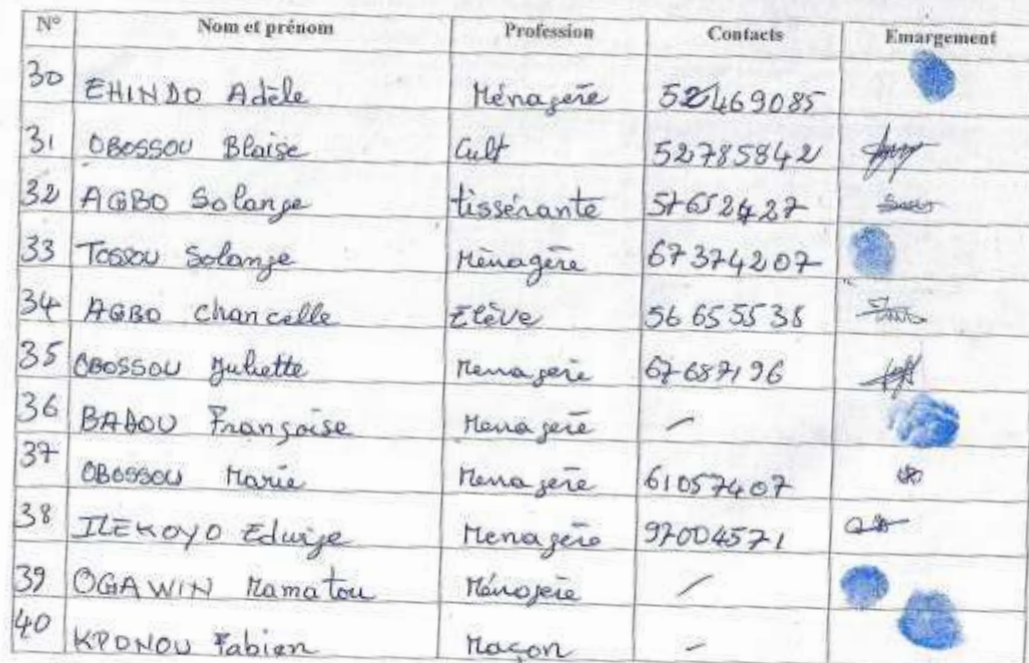 N° Nom et prénom Profession Contacts Emargement
30 EHINDO Adèle Ménagère 52469085
31 OBOSSOU Blaise Cult 52785842
32 AGBO Solange tissérante 57652427
33 TOSSOU Solange Ménagère 67374207
34 AGBO Chancelle Elève 56655538
35 OBOSSOU Juliette Menagère 67687196
36 BADOU Françoise Menagère -
37 OBOSSOU Marie Menagère 61057407
38 ILEKOYO Edwige Menagère 97004571
39 OGAWIN Mamatou Ménagère /
40 KPONOU Fabien Maçon -